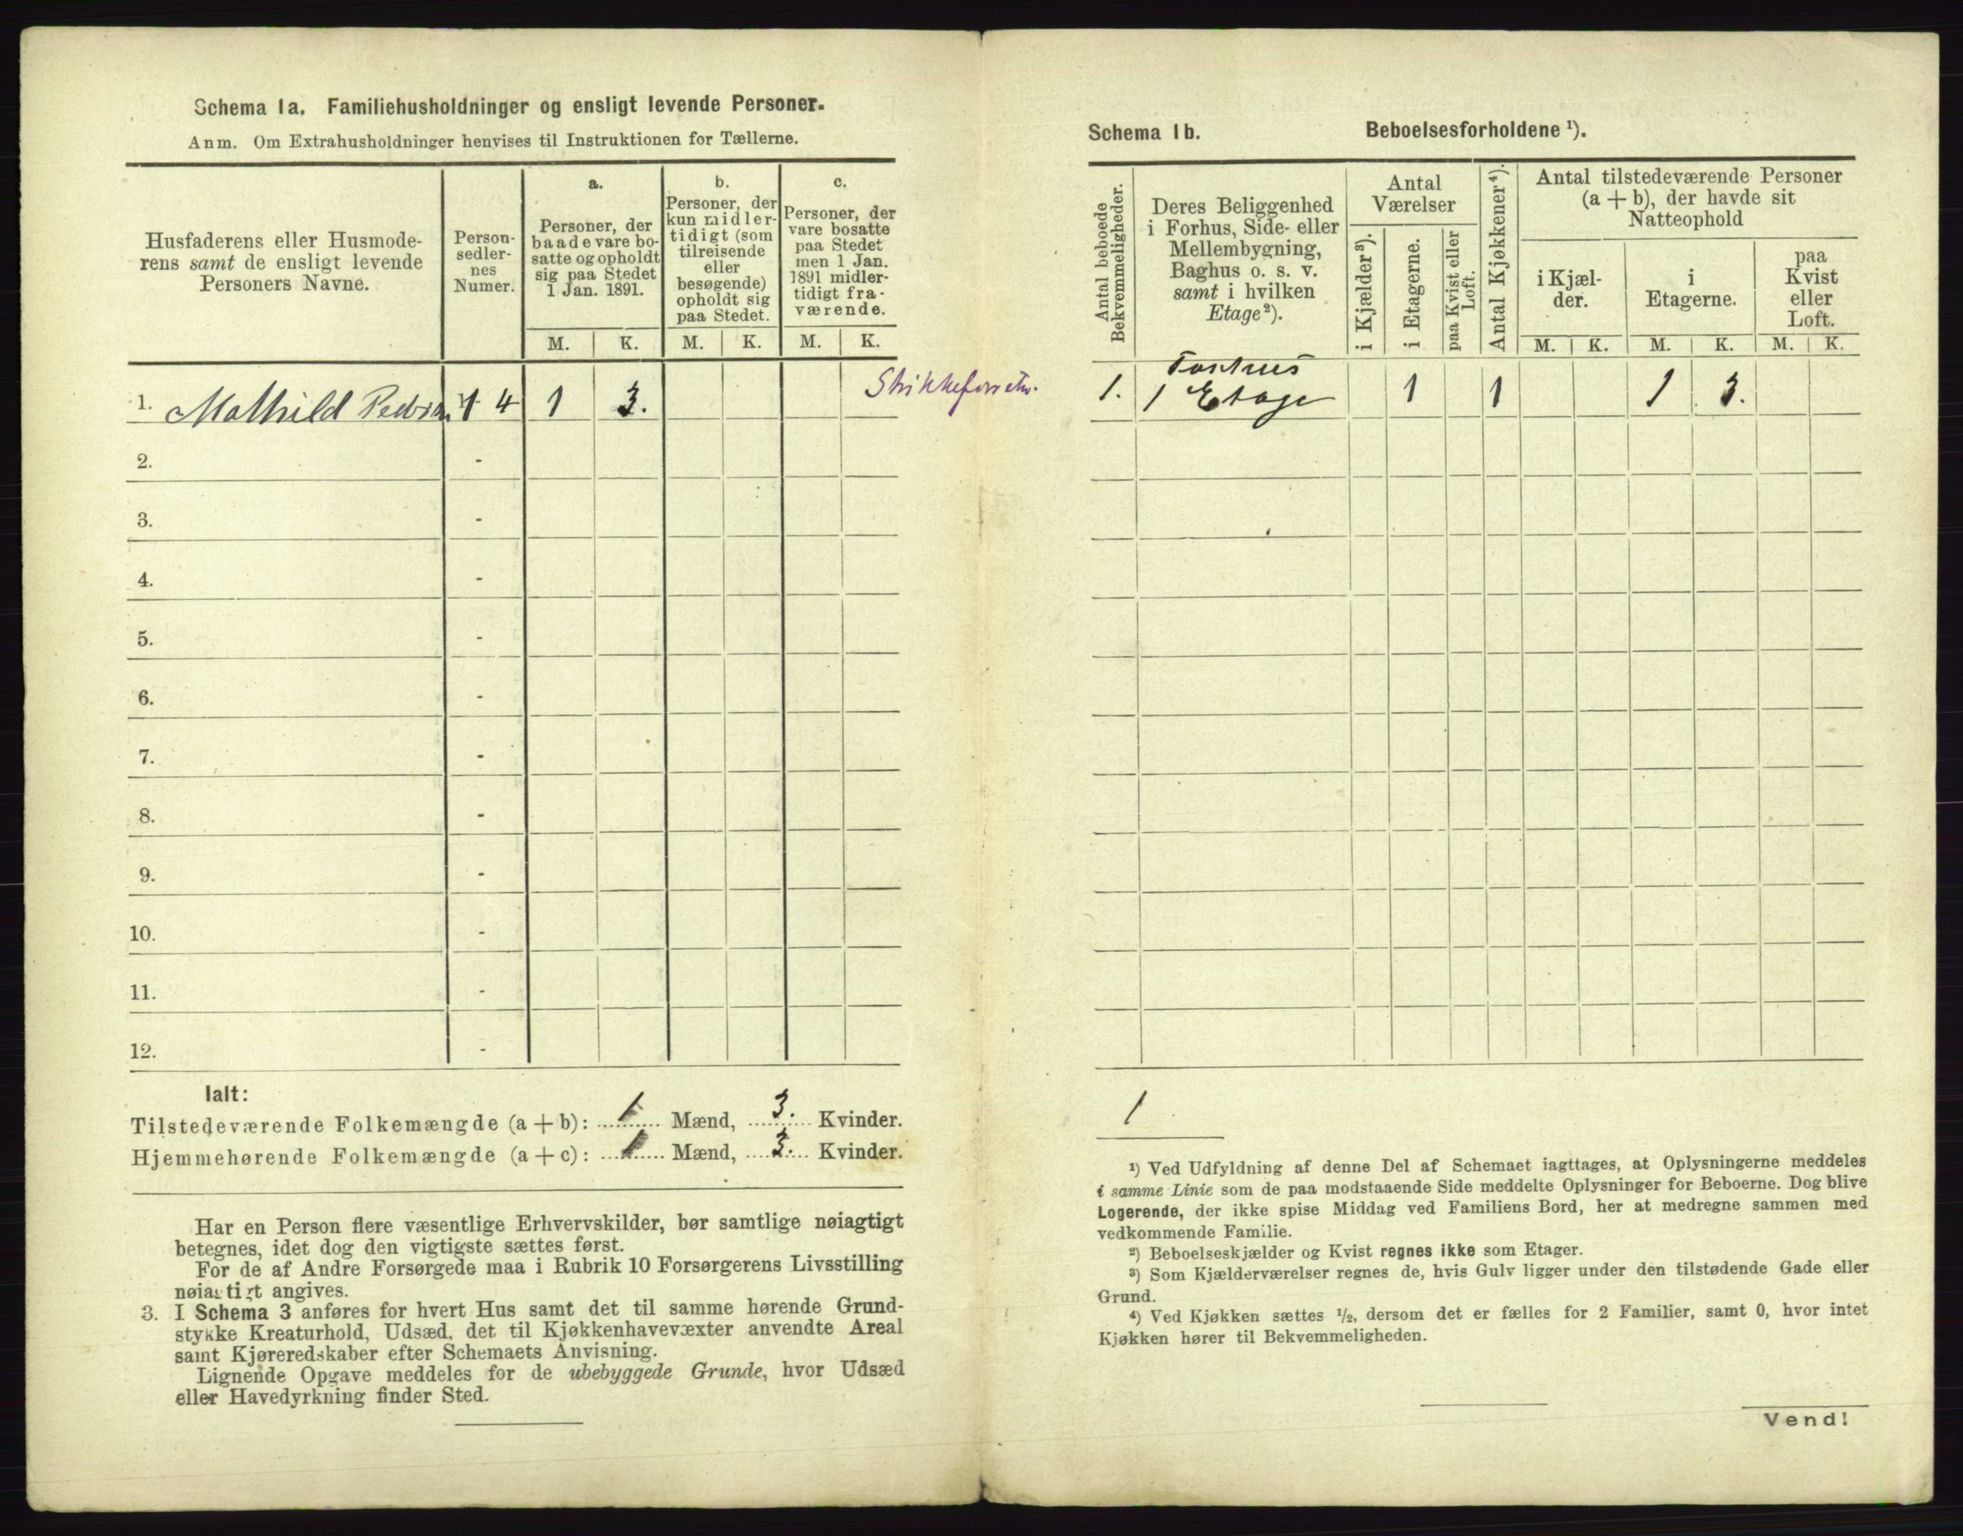 Schema 1a. Familiehusholdninger og ensligt levende Personer.
Anm. Om Extrahusholdninger henvises til Instruktionen for Tællerne.
Husfaderens eller Husmode-
rens samt de ensligt levende
Personers Navne.
Person-
sedler-
nes
Numer.
a.
Personer, der
baade vare bo-
satte og opholdt
sig paa Stedet
1 Jan. 1891.
b.
Personer, der
kun midler-
tidigt (som
tilreisende
eller
besøgende)
opholdt sig
paa Stedet.
c.
Personer, der
vare bosatte
paa Stedet
men 1 Jan.
1891 midler-
tidigt fra-
værende.
M. K. M. K. M. K.
1. Mathild Pedersen 1-4 1 3.
2. -
3. -
4. -
5. -
6. -
7. -
8. -
9. -
10. -
11. -
12. -
Ialt:
Tilstedeværende Folkemængde (a + b): 1 Mænd, 3. Kvinder.
Hjemmehørende Folkemængde (a + c): 1 Mænd, 3. Kvinder.
Har en Person flere væsentlige Erhvervskilder, bør samtlige nøiagtigt
betegnes, idet dog den vigtigste sættes først.
For de af Andre Forsørgede maa i Rubrik 10 Forsørgerens Livsstilling
nøiagtigt angives.
3. I Schema 3 anføres for hvert Hus samt det til samme hørende Grund-
stykke Kreaturhold, Udsæd, det til Kjøkkenhavevæxter anvendte Areal
samt Kjøreredskaber efter Schemaets Anvisning.
Lignende Opgave meddeles for de ubebyggede Grunde, hvor Udsæd
eller Havedyrkning finder Sted.
Schema 1b. Beboelsesforholdene ¹).
Antal beboede
Bekvemmeligheder.
Deres Beliggenhed
i Forhus, Side- eller
Mellembygning,
Baghus o. s. v.
samt i hvilken
Etage²).
Antal
Værelser
i Kjælder³).
i Etagerne.
paa Kvist eller
Loft.
Antal Kjøkkener⁴).
Antal tilstedeværende Personer
(a + b), der havde sit
Natteophold
i Kjæl-
der.
i
Etagerne.
paa
Kvist
eller
Loft.
M. K. M. K. M. K.
Forhus
1. 1 Etage 1 1 1 3.
1
¹) Ved Udfyldning af denne Del af Schemaet iagttages, at Oplysningerne meddeles
i samme Linie som de paa modstaaende Side meddelte Oplysninger for Beboerne. Dog blive
Logerende, der ikke spise Middag ved Familiens Bord, her at medregne sammen med
vedkommende Familie.
²) Beboelseskjælder og Kvist regnes ikke som Etager.
³) Som Kjælderværelser regnes de, hvis Gulv ligger under den tilstødende Gade eller
Grund.
⁴) Ved Kjøkken sættes ½, dersom det er fælles for 2 Familier, samt 0, hvor intet
Kjøkken hører til Bekvemmeligheden.
Vend!